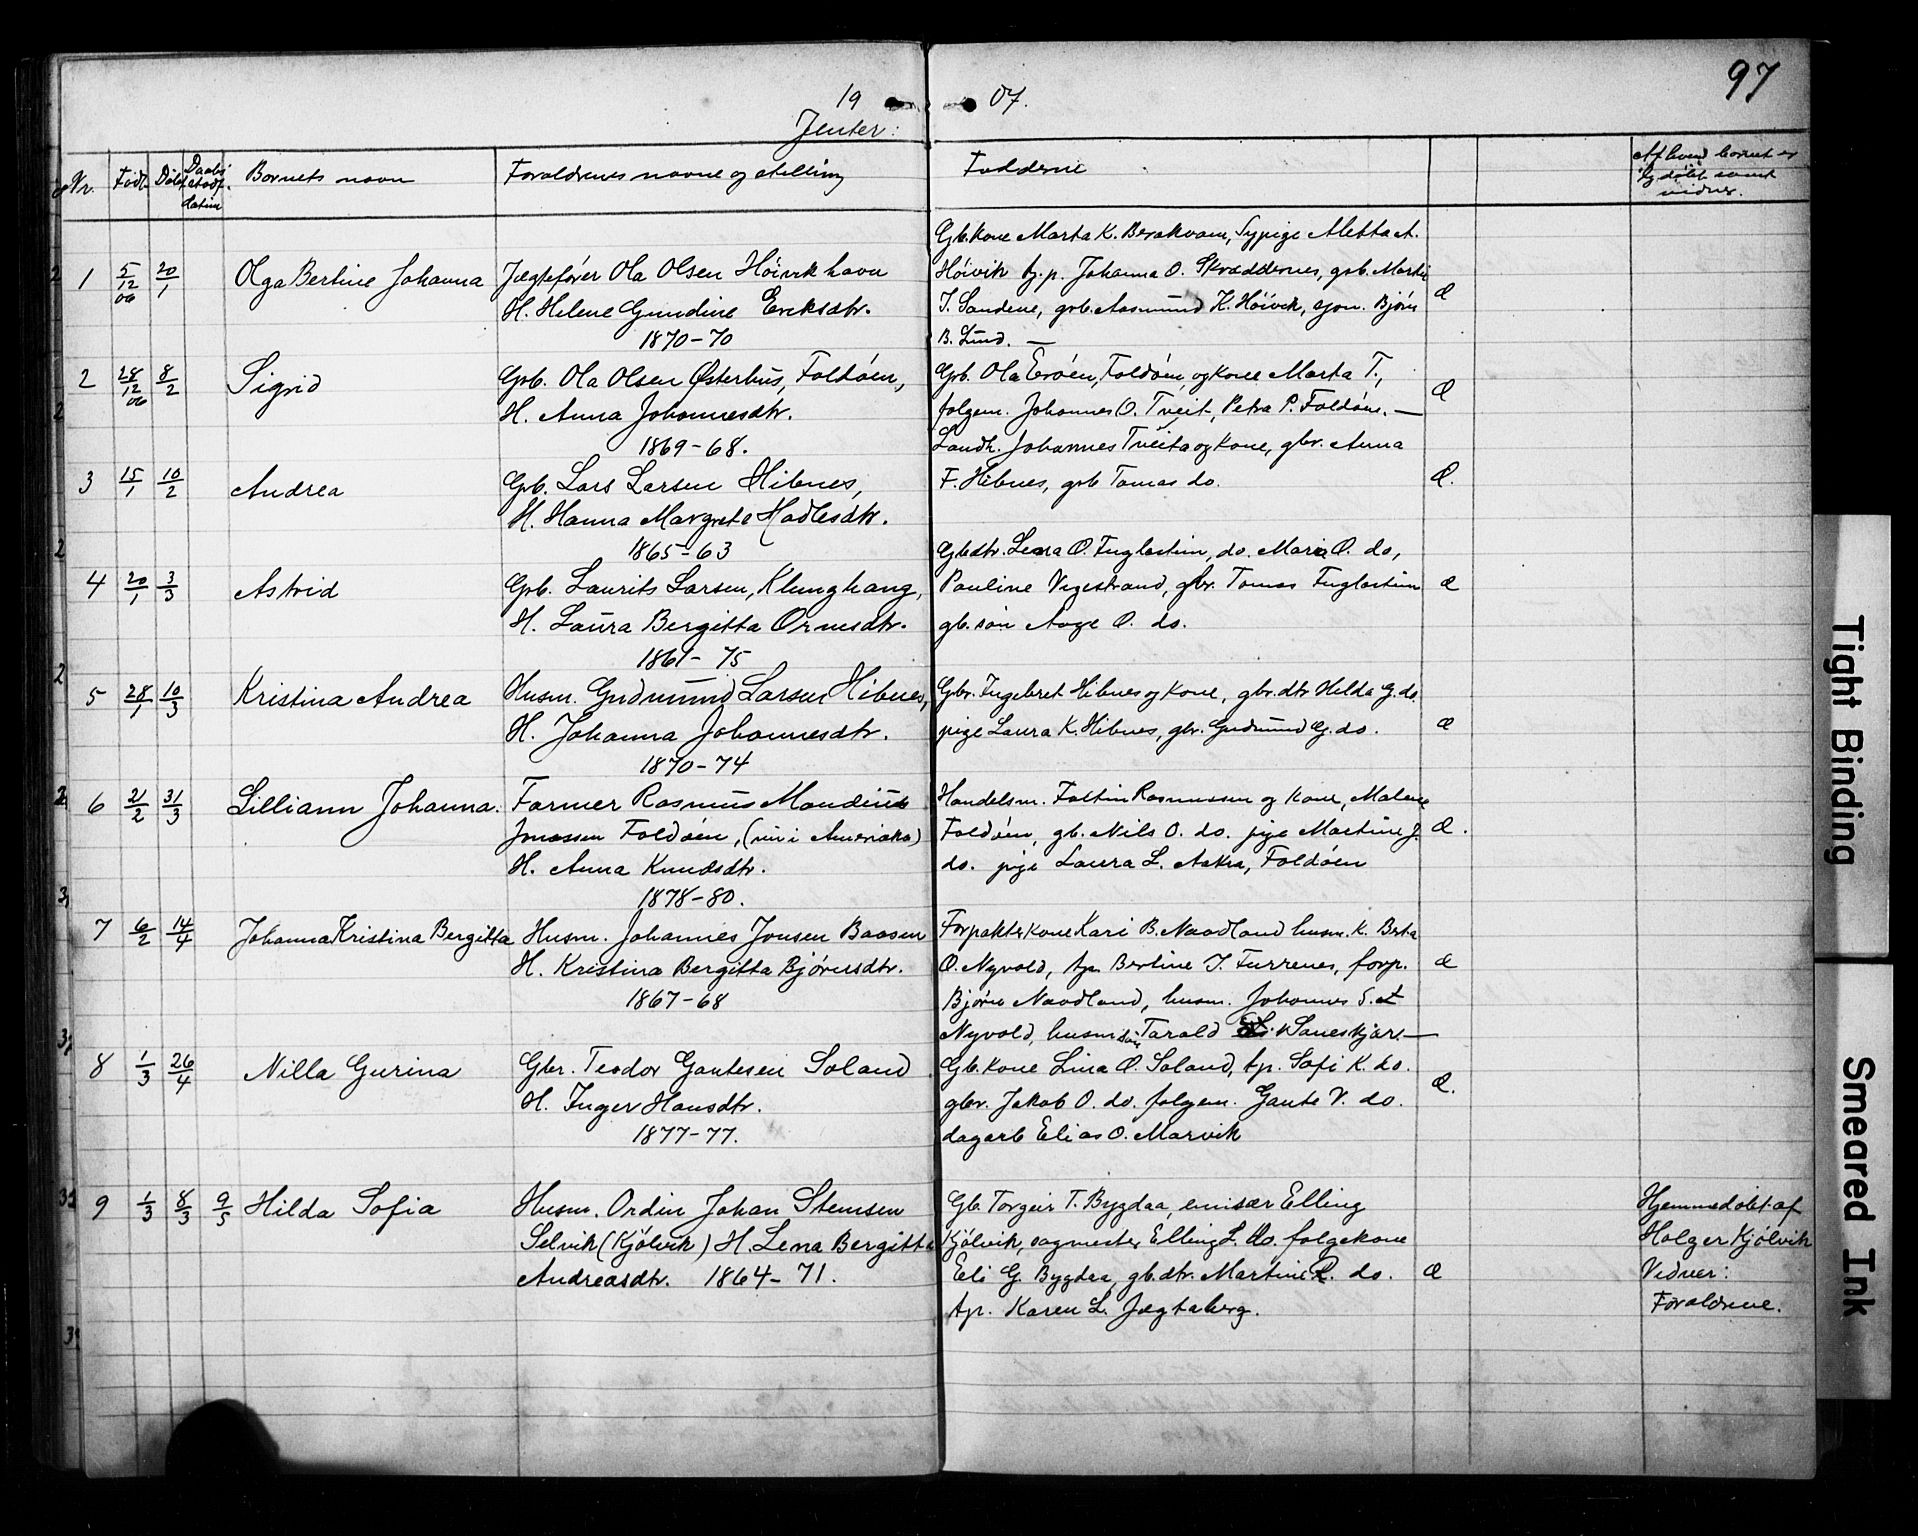 97
19 07.
Jenter:
Nr. Født Døbt Daabs stadf. datum Barnets navn Forældrenes navne og stilling Fadderne Af hvem barnet er hj. døbt samt vidner.
Gb. kone Marta K. Berakvam, Sypige Aletta A.
1 5/12 06 20/1 Olga Bertine Johanna Jægtefører Ola Olsen Höivik havn Höivik tj. p. Johanna O. Skræddernes, grb. Martin
H. Helene Gundine Eriksdtr. I. Sandene, grb. Aasmund K. Höivik, ejon. Bjørn Æ
1870-70 B. Lund. —
2 28/12 06 8/2 Sigrid Grb. Ola Olsen Østerhus, Foldöen, Grb. Ola Eröen, Foldöen, og kone Marta T., Æ
H. Anna Johannesdtr. folgem. Johannes O. Tveit, Petra P. Foldöen. —
1869-68. Landh. Johannes Tveita og kone, gbr. Anna
3 15/1 10/2 Andrea Grb. Lars Larsen Hibnes, F. Hibnes, grb Tomas do. Æ.
H. Hanna Margrete Hadlesdtr.
1865-63 Gbdtr. Lena O. Fuglestein, do. Maria O. do,
4 20/1 3/3 Astrid Grb. Laurits Larsen, Klunghaug, Pauline Vegestrand, gbr. Tomas Fuglestein Æ
H. Laura Bergitta Ormsdtr. gb. søn Aage O. do.
1861-75
5 28/1 10/3 Kristina Andrea Husm. Gudmund Larsen Hibnes, Gbr. Ingebret Hibnes og kone, gbr. dtr Hilda G. do.
H. Johanna Johannesdtr. pige Laura K. Hibnes, gbr. Gudmund G. do. Æ
1870-74
6 21/2 31/3 Lilliann Johanna. Farmer Rasmus Mandius Handelsm. Foltin Rasmussen og kone, Malene
Jonassen Foldöen, (nu i Amerika) Foldöen, gb. Nils O. do. pige Martine J. Æ.
H. Anna Knudsdtr. do. pige Laura L. Aakra, Foldöen
1878-80.
7 6/2 14/4 Johanna Kristina Bergitta Husm. Johannes Jonsen Baasen Forpakterkone Kari B. Naadland husm. K. Berta
H. Kristina Bergitta Bjørnsdtr. O. Nyvold, tp. Bertine I. Furrenes, forp. Æ
1867-68 Bjørn Naadland, husm. Johannes S.
Nyvold, husm søn Tarald Saneskjær. —
8 1/3 26/4 Nilla Gurina Gbr. Teodor Gautesen Soland Gb. kone Lina O. Soland, tp. Sofi K. do.
H. Inger Hansdtr. gbr. Jakob O. do. folgem. Gaute V. do. Æ.
1877-77. dagarb Elias O. Marvik
9 1/3 8/3 9/5 Hilda Sofia Husm. Ordin Johan Stemsen Gb. Torgeir T. Bygdaa, emisær Elling Hjemmedøbt af
Selvik (Kjölvik) H. Lena Bergitta Kjölvik, sagmester Elling L. do. folgekone Holger Kjölvik
Andreasdtr. 1864-71. Eli G. Bygdaa, gb. dtr. Martine R. do. Æ Vidner:
tp. Karen L. Jægtaberg. Forældrene.
Tight Binding
Smeared Ink